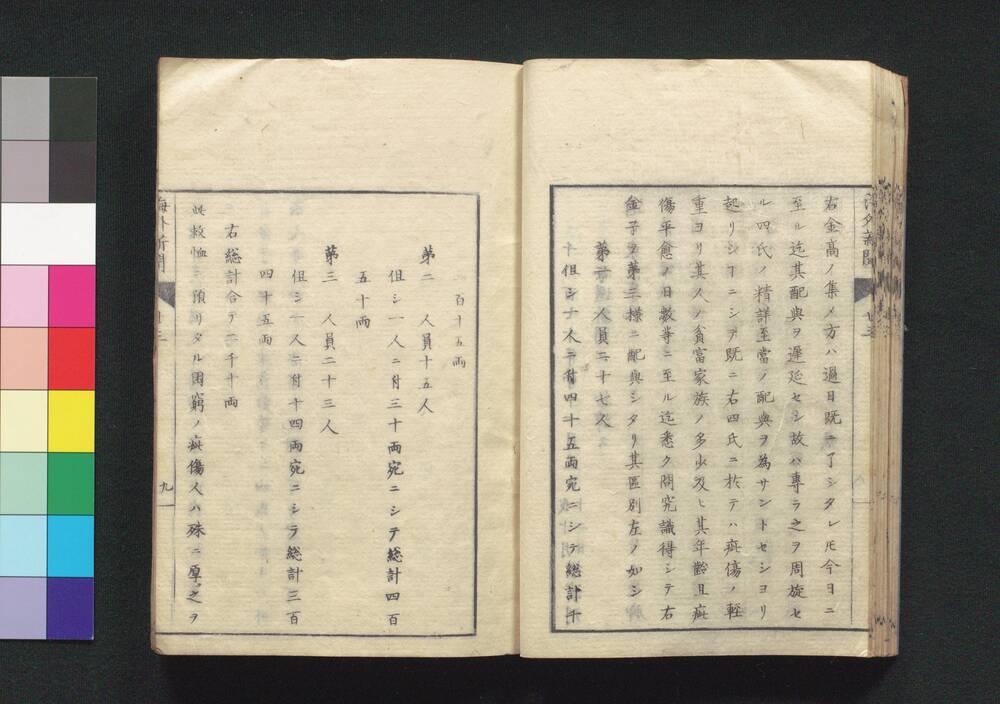 海外新聞 廿三
右金高ノ集メ方ハ過日既ニ了シタレ𪜈今ヨニ
至ル迄其配與ヲ遲延セシ故ハ專ラ之ヲ周旋セ
ル四氏ノ精詳至當ノ配與ヲ為サントセシヨリ
起リシヿニシテ既ニ右四氏ニ於テハ疵傷ノ輕
重ヨリ其人ノ貧富家族ノ多少及ヒ其年齡且疵
傷平愈ノ日數等ニ至ル迄悉ク問究識得シテ右
金子ヲ第三樣ニ配與シタリ其區別左ノ如シ
第一 人員二十七人
但シ一人ニ付四十五両宛ニシテ総計千
二百十五両
第二 人員十五人
但シ一人ニ付三十両宛ニシテ総計四百
五十両
第三 人員二十三人
但シ一人ニ付十四両宛ニシラ総計三百
四十五両
右総計合テ二千十両
此救恤ニ預リタル困窮ノ疵傷人ハ殊ニ厚ク之ヲ
海外新聞 廿三 九